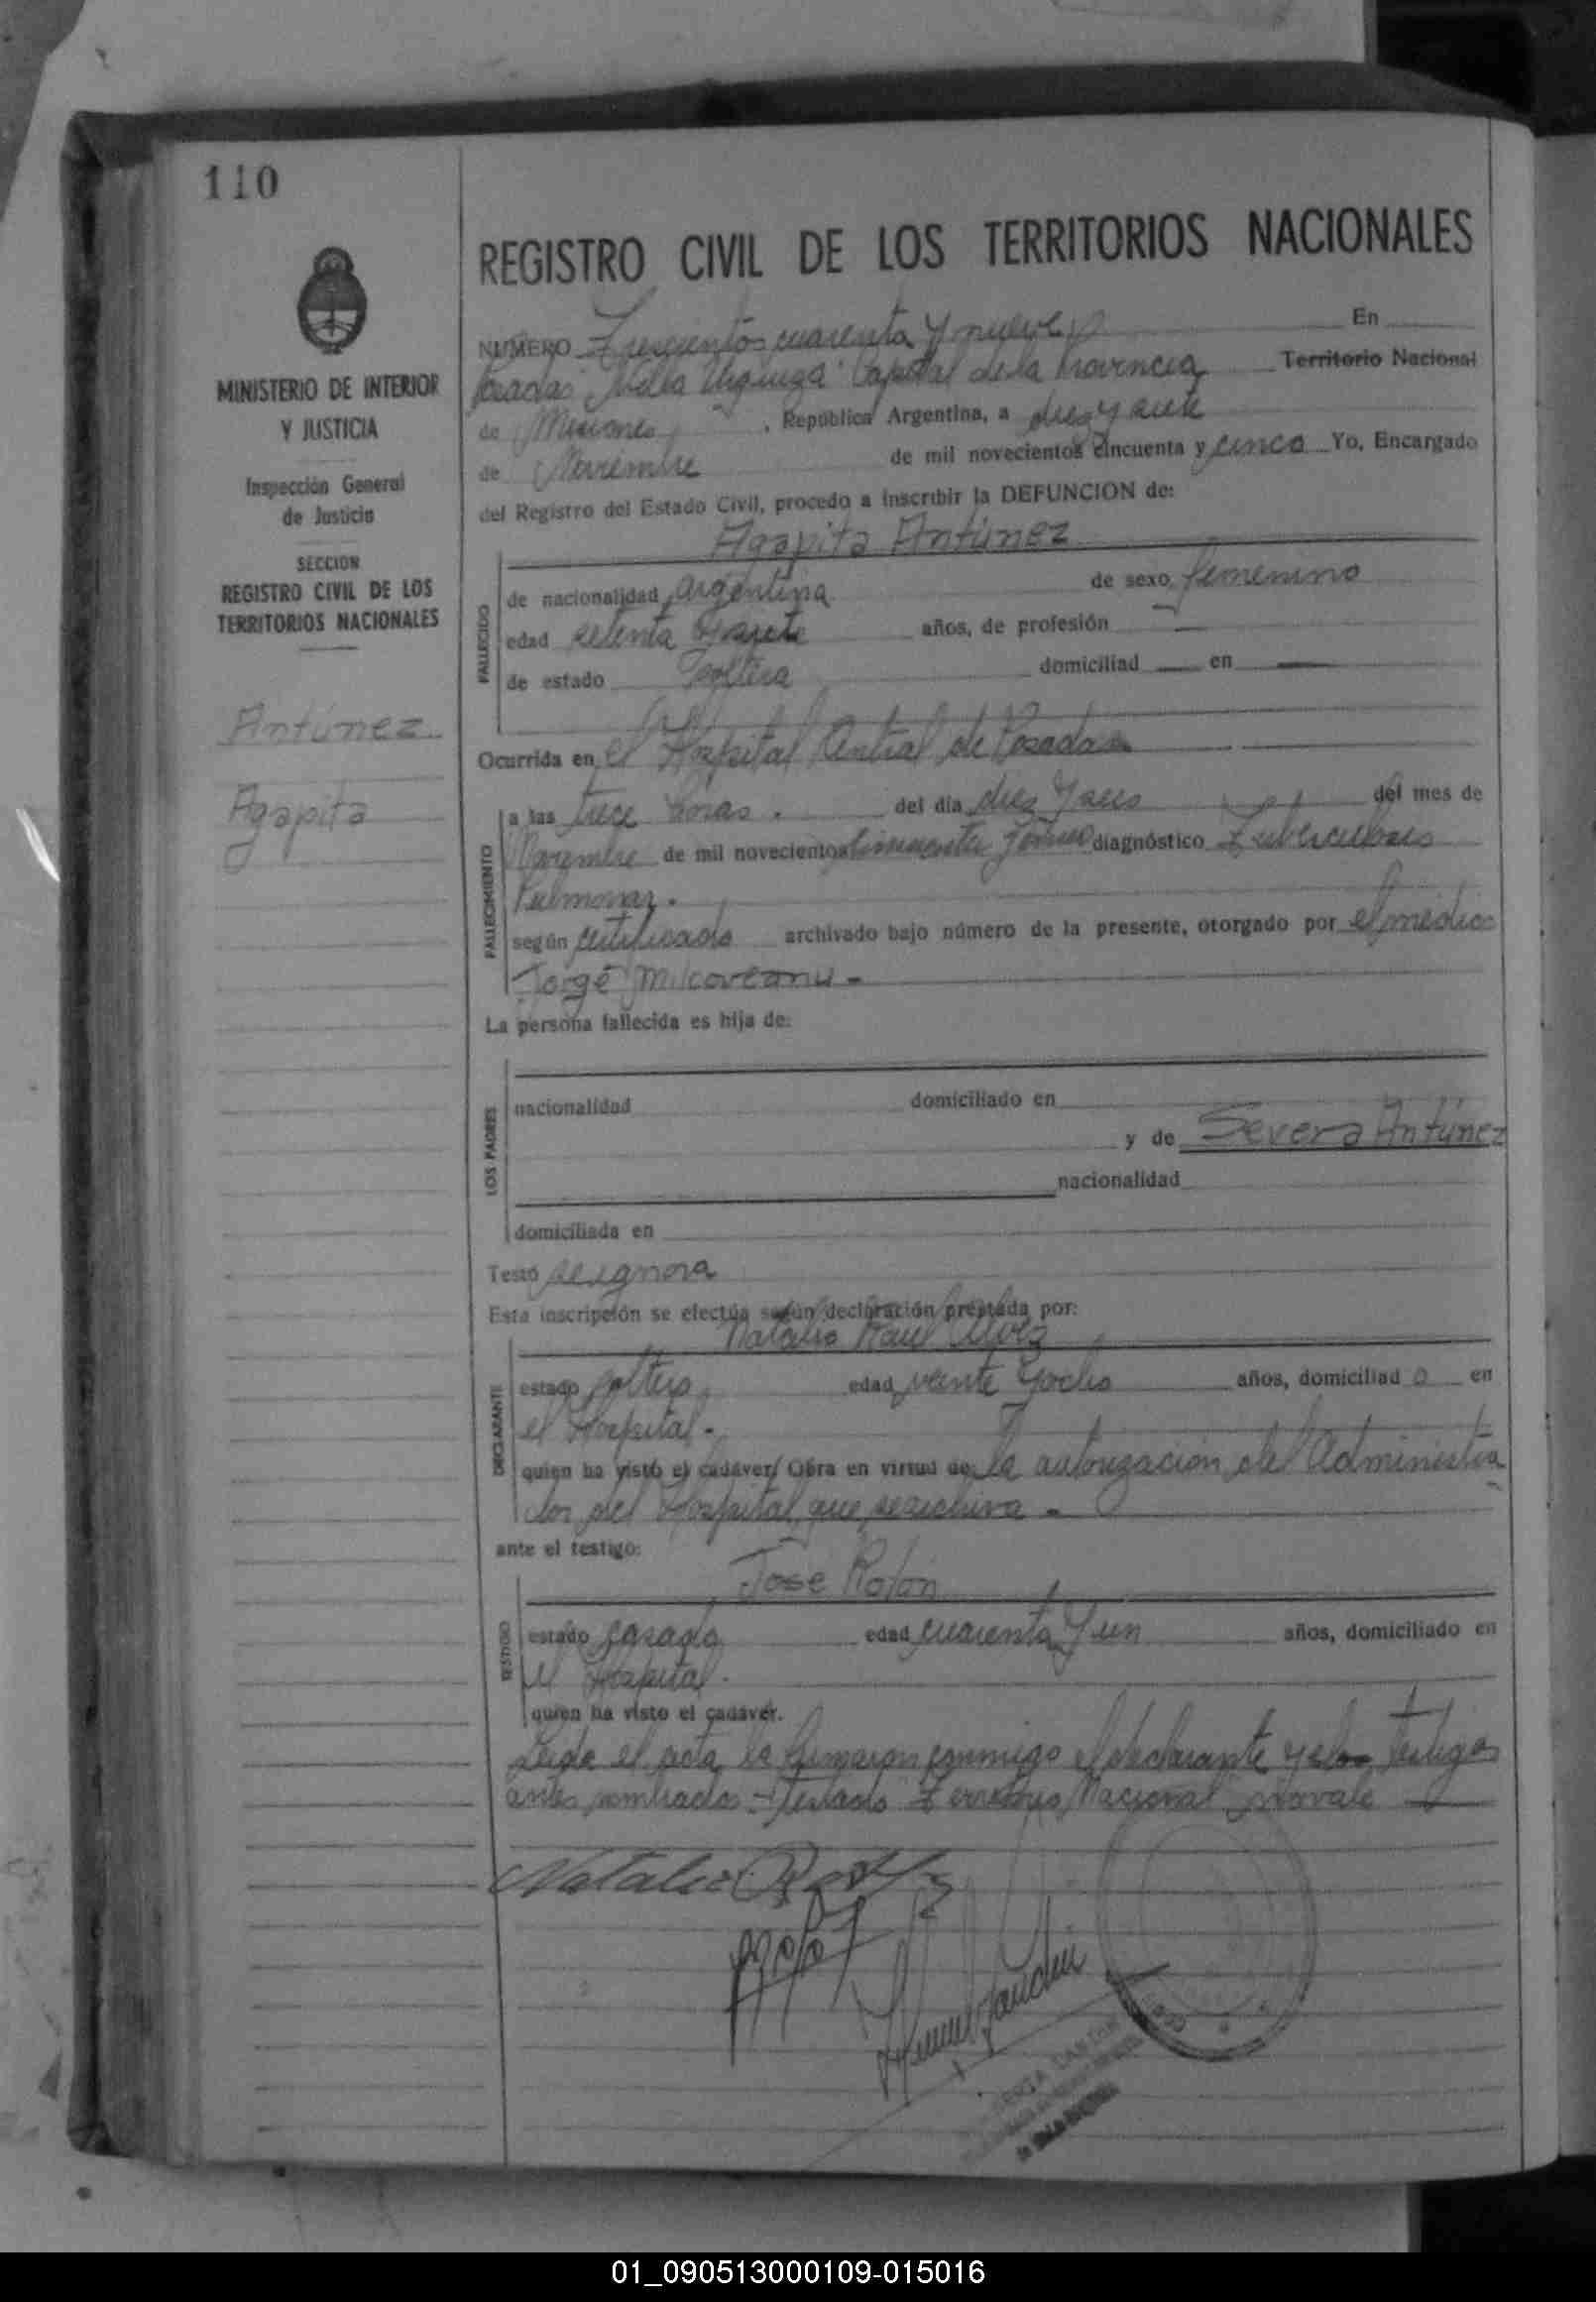 110
MINISTERIO DE INTERIOR
Y JUSTICIA
Inspección General
de Justicia
SECCION
REGISTRO CIVIL DE LOS
TERRITORIOS NACIONALES
Antúnez
Agapita
REGISTRO CIVIL DE LOS TERRITORIOS NACIONALES
NUMERO Trescientos cuarenta y nueve En
Posadas Villa Urquiza Capital de la Provincia Territorio Nacional
de Misiones, República Argentina, a diez y siete
de Noviembre de mil novecientos cincuenta y cinco Yo, Encargado
del Registro del Estado Civil, procedo a inscribir la DEFUNCION de:
Agapita Antúnez
FALLECIDO
de nacionalidad argentina de sexo femenino
edad setenta y siete años, de profesión —
de estado Soltera domiciliad — en —
Ocurrida en el Hospital Central de Posadas
FALLECIMIENTO
a las trece horas. del día diez y seis del mes de
Noviembre de mil novecientos cincuenta y cinco diagnóstico Tuberculosis
Pulmonar.
según certificado archivado bajo número de la presente, otorgado por el médico
Jorge Milcoveanu -
La persona fallecida es hija de:
LOS PADRES
nacionalidad domiciliado en
y de Severa Antúnez
nacionalidad
domiciliada en
Testó se ignora
Esta inscripción se efectúa según declaración prestada por:
Natalio Raul
DECLARANTE
estado soltero edad veinte y ocho años, domiciliad o en
el Hospital.
quien ha visto el cadáver/ Obra en virtud de: la autorización del Administra
dor del Hospital que se archiva -
ante el testigo:
José Rolón
TESTIGO
estado casado edad cuarenta y un años, domiciliado en
el Hospital.
quien ha visto el cadáver.
Leída el acta la firmaron conmigo el declarante y testigo
antes nombrados. - Testado Territorio Nacional no vale
Natalio
01_090513000109-015016